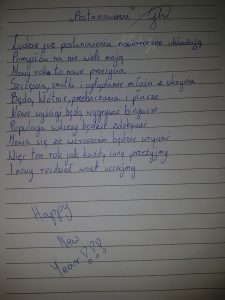 "Postanowienia"
Ludzie już postanowienia noworoczne układają
Pomysłów na nie wiele mają
Nowy rok to nowe przeżycia
Szczęścia, smutki i oglądanie miłości z ukrycia
Będą kłótnie, przebaczenia i płacze
Nowe wyścigi będą wygrywać biegacze
Popularja sukcesy będzie zdobywać
Mowa się ze wzruszenia będzie urywać
Więc ten rok jak każdy inny przeżyjmy
I nowy rozdział wnet
Happy
New
Year